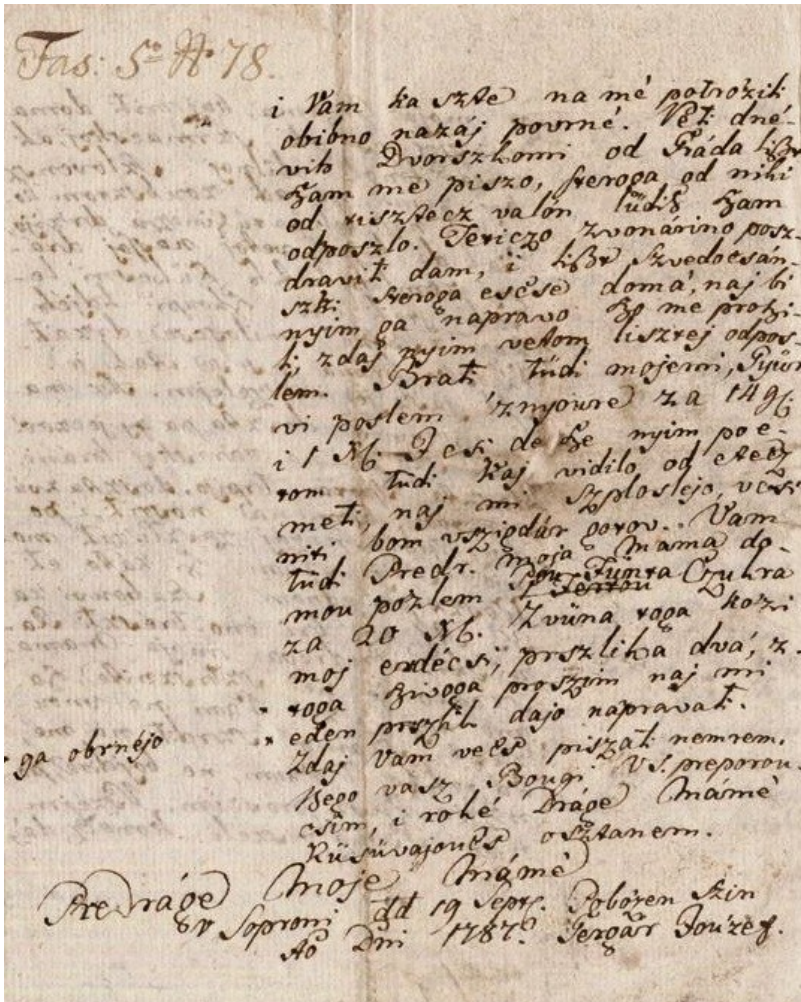 Fas: 5to No 78.
i Vam ka szte na mé potrózili
obibno nazáj povrné. Vet: dné-
vib Dvorszkomi od Gráda liszt
szam me piszo, steroga od niki
od tisztecz valón lüdih szam
odposzlo. Tericzo zvonárino posz-
dravit dam, i liszt Szvedocsán-
szki steroga escse domá, naj bi
nyim ga napravo me
zdaj nyim vetom lisztej odpos-
lem. Brati tüdi mojemi, Gyür
vi poslem 'znyoure za 14 g
i 1 Xb. I csi de sze nyim po e-
tom tüdi kaj vidilo, od etecz
meti, naj mi szploslejo, vcsi
niti bom vszigdár gotov. Vam
tüdi Predr. moja Mama do-
mou pozlem Funta Czukra
za 20 Xb. Zvüna toga kozi
moj erdécsi, prszlika dvá, z
toga proszim naj mi
eden prszlik dajo napravat.
ga obrnéjo
Zdaj Vam vecs piszat: nemrem.
Nego vasz Bougi Vs. preporou-
csim, i roké Dráge Mámé
Küsüvajoucs osztanem.
Predráge Moje Mámé
v Soproni dd 19 Sept. Pobozen Szin
Ao Dni 1787. Gergár Jou'zef.